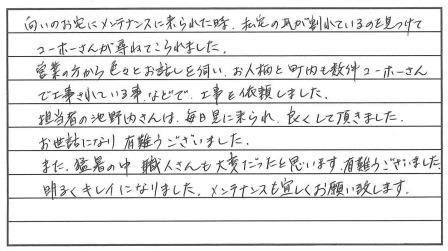 向いのお宅にメンテナンスに来られた時、私宅の瓦が割れているのを見つけて
コーホーさんが尋ねてこられました。
営業の方から色々とお話しを伺い、お人柄と町内も数件コーホーさん
で工事されている事、などで、工事を依頼しました。
担当者の池野内さんは、毎日見に来られ、良くして頂きました。
お世話になり有難うございました。
また、猛暑の中 職人さんも大変だったと思います。有難うございました。
明るくキレイになりました。メンテナンスも宜しくお願い致します。